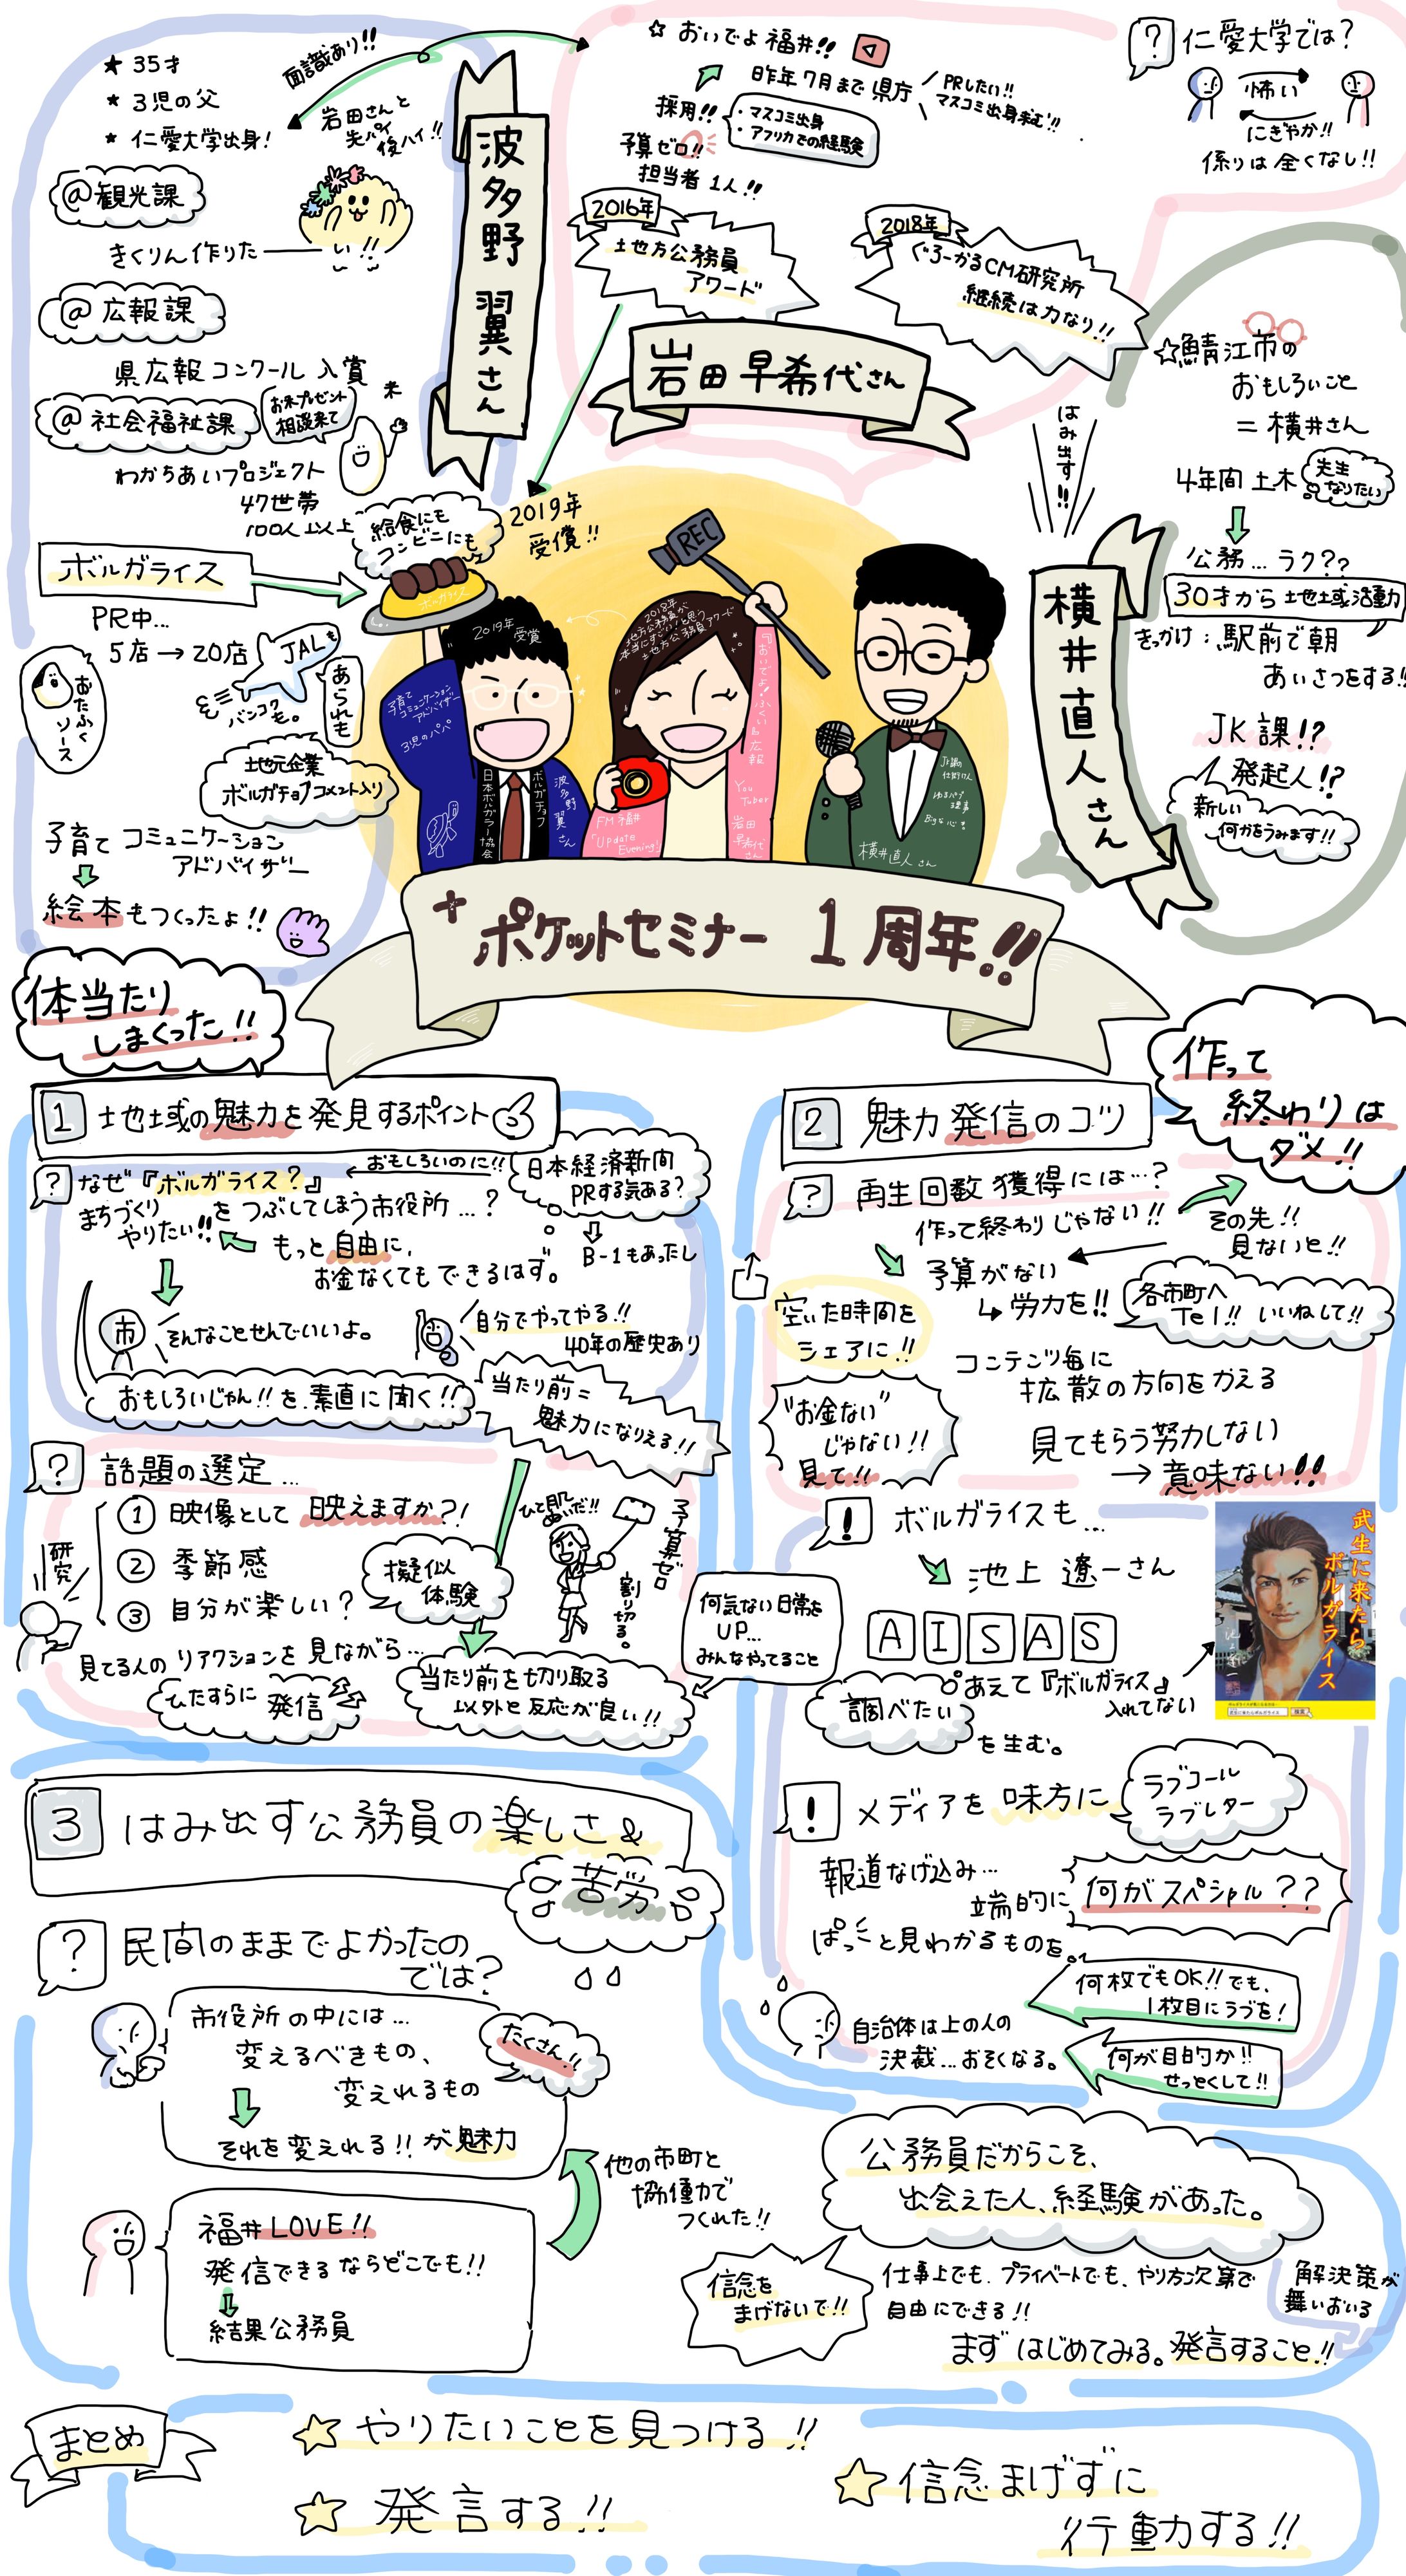 ★ 35才
★ 3児の父
★ 仁愛大学出身!
面識あり!!
岩田さんと
先パイ
後ハイ!!
@観光課
きくりん作りたい!!
@広報課
県広報コンクール 入賞
@社会福祉課
お米プレゼント
相談来て
米
わかちあいプロジェクト
47世帯
100人以上
給食にも
コンビニにも
ボルガライス
PR中...
5店→20店
JALも
バンコクも。
あられも
おたふく
ソース
地元企業
ボルガチョフコメント入り
子育て コミュニケーション
アドバイザー
絵本もつくったよ!!
波多野 翼さん
☆ おいでよ福井!!
昨年7月まで県庁
PRしたい!!
マスコミ出身求む!!
採用!!
・マスコミ出身
・アフリカでの経験
予算ゼロ!!
担当者 1人!!
2016年
地方公務員
アワード
2018年
ぐろーかるCM研究所
継続は力なり!!
岩田早希代さん
2019年
受賞!!
? 仁愛大学では?
怖い
にぎやか!!
係りは全くなし!!
☆鯖江市の
おもしろいこと
= 横井さん
4年間 土木
先生
なりたい
公務... ラク??
30才から地域活動
きっかけ:駅前で朝
あいさつをする!!
JK課!?
発起人!?
新しい
何かをうみます!!
はみ出す!!
横井直人さん
ボルガライス
2019年
受賞
子育て
コミュニケーション
アドバイザー
3児のパパ
日本ボルガラー協会
ボルガチョフ
波多野翼さん
REC
2018年
地方公務員が
本当にすごい!と思う
地方公務員アワード
「おいでよ!ふくい」広報
You
Tuber
岩田
早希代
さん
FM福井
「Update
Evening」
JK課の
仕掛け人
ゆるパブ
理事
Bigな心!
横井直人さん
ポケットセミナー 1周年!!
体当たり
しまくった!!
1 地域の魅力を発見するポイント
? なぜ『ボルガライス?』
おもしろいのに!!
をつぶしてしまう市役所...?
まちづくり
やりたい!!
もっと自由に、
お金なくてもできるはず。
日本経済新聞
PRする気ある?
B-1もあったし
市
そんなことせんでいいよ。
自分でやってやる!!
40年の歴史あり
おもしろいじゃん!!を、素直に聞く!!
当たり前=
魅力になりえる!!
? 話題の選定...
① 映像として 映えますか?!
② 季節感
③ 自分が楽しい?
研究
擬似
体験
ひと肌
ぬいだ!!
予算ゼロ
割り切る。
見てる人のリアクションを見ながら...
ひたすらに 発信
当たり前を切り取る
以外と反応が良い!!
何気ない日常を
UP...
みんなやってること
作って
終わりは
ダメ!!
2 魅力発信のコツ
? 再生回数獲得には...?
作って終わりじゃない!!
その先!!
見ないと!!
予算がない
↳ 労力を!!
各市町へ
Tel!! いいねして!!
空いた時間を
シェアに!!
コンテンツ毎に
拡散の方向をかえる
"お金ない"
じゃない!!
見て!!
見てもらう努力しない
→ 意味ない!!
! ボルガライスも...
池上 遼一さん
AISAS
あえて『ボルガライス』
入れてない
調べたい
を生む。
武生に来たら
ボルガライス
武生に来たらボルガライス
検索
! メディアを味方に
ラブコール
ラブレター
報道なげ込み...
端的に
何がスペシャル??
ぱっと見わかるものを。
何枚でもOK!!でも、
1枚目にラブを!
自治体は上の人の
決裁...おそくなる。
何が目的か!!
せっとくして!!
3 はみ出す公務員の楽しさ&
苦労
? 民間のままでよかったの
では?
市役所の中には...
変えるべきもの、
変えれるもの
たくさん!!
それを変えれる!!が魅力
福井LOVE!!
発信できるならどこでも!!
結果公務員
他の市町と
協働で
つくれた!!
公務員だからこそ、
出会えた人、経験があった。
信念を
まげないで!!
仕事上でも、プライベートでも、やり方次第で
自由にできる!!
解決策が
舞いおりる
まずはじめてみる。発言すること!!
まとめ
☆ やりたいことを見つける!!
☆ 発言する!!
☆ 信念まげずに
行動する!!